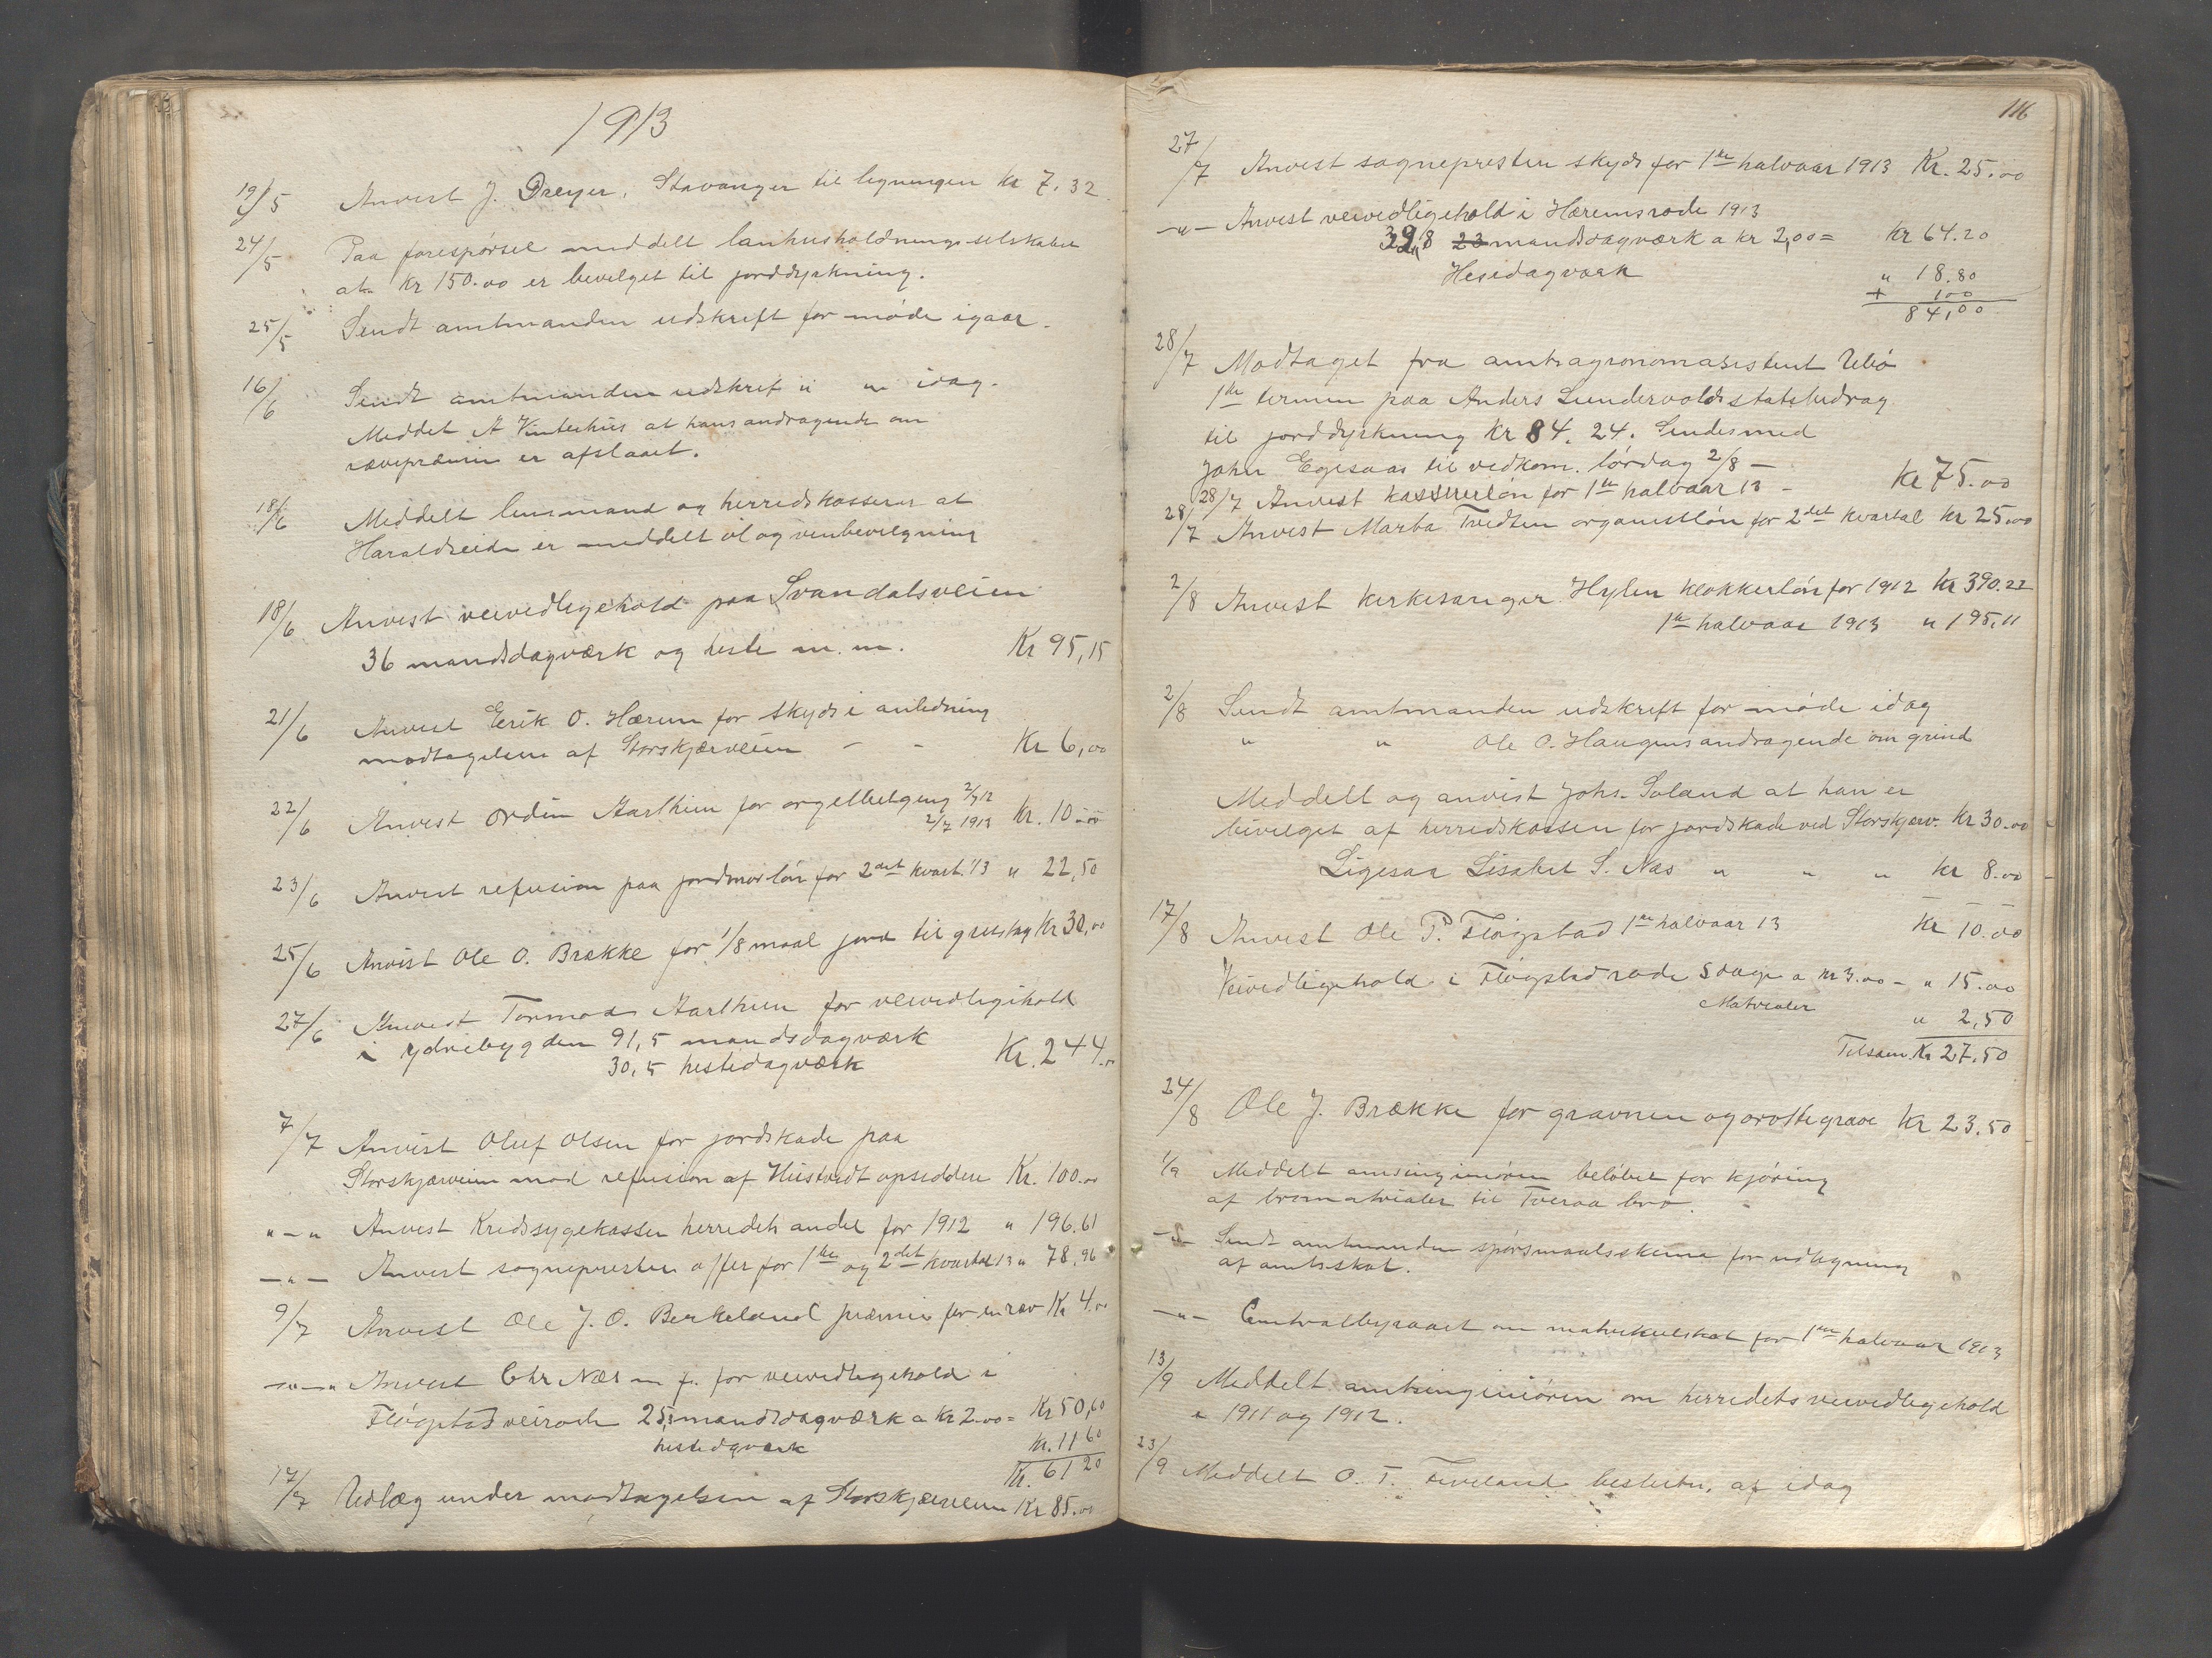 1913
19/5 Anvist J. Dreyer, Stavanger til ligningen Kr 7.32
24/5 Paa forespørsel meddelt lanhusholdningsselskabet
at Kr 150.00 er bevilget til jorddyrkning.
25/5 Sendt amtmanden udskrift for møde igaar.
16/6 Sendt amtmanden udskrift " " idag.
Meddelt A Vintehus at hans andragende om
rævepræmie er afslaaet.
18/6 Meddelt lensmand og herredskasserer at
Haraldseide er meddelt øl og vinbevilgning
18/6 Anvist veivedligehold paa Svandalsveien
36 mandsdagværk og heste m.m. Kr 95,15
21/6 Anvist Eerik O. Hærum for skyds i anledning
modtagelsen af Storskjærveien - - Kr 6,00
22/6 Anvist ordfm Aarthun for orgelbelgning 2/7 12
2/7 1913 Kr. 10.00
23/6 Anvist refusion paa jordmorløn for 2det kvart. 13 " 22,50
25/6 Anvist Ole O. Brække for 1/8 maal jord til grustag Kr 30,00
27/6 Anvist Tormod Aarthun for veivedligehold
i ydrebygden 91,5 mandsdagværk
30,5 hestedagværk Kr. 244.00
7/7 Anvist Oluf Olsen for jordskade paa
Storskjærveien mod refusion af Hustvedt opsiddere Kr. 100.00
"-" Anvist Kredssygekassen herredets andel for 1912 " 196.61
-"- Anvist sognepresten offer for 1ste og 2det kvartal 13 " 78,96
9/7 Anvist Ole J. O. Berkeland præmie for en ræv Kr 4.00
-"-" Anvist Chr Næs m fl. for veivedligehold i
Fløgstadveirode 25,3 mandsdagværk a Kr 2.00 = Kr 50,60
hestedagværk Kr. 11 60
Kr. 61 20
17/7 Udlæg under modtagelsen af Storskjærveien Kr 85.00
116
27/7 Anvist sognepresten skyds for 1ste halvaar 1913 Kr. 25.00
-"- Anvist veivedligehold i Hæremsrode 1913
32,8 23 mandsdagværk a kr 2,00 = Kr 64.20
Hestedagværk " 18.80
+ 100
84,00
28/7 Modtaget fra amtsagronomasistent Ubø
1ste termin paa Anders Sundervolds statsbidrag
til jorddyrkning Kr 84.24. Sendes med
John Egesaas til vedkom. lørdag 2/8 -
28/7 Anvist kassererløn for 1ste halvaar 13 - Kr 75.00
28/7 Anvist Marta Tvedten organistløn for 2det kvartal Kr 25.00
2/8 Anvist kirkesanger Hylen klokkerløn for 1912 Kr 390.22
1ste halvaar 1913 " 195.11
2/8 Sendt amtmanden udskrift for møde idag
" " Ole O. Haugens andragende om grind
Meddelt og anvist Johs. Soland at han er
bevilget af herredskassen for jordskade ved Storskjærv. Kr 30.00
Ligesaa Lisabet S. Næs " " " Kr 8.00
17/8 Anvist Ole P. Fløgstad 1ste halvaar 13 Kr 10.00
Veivedligehold i Fløgstadrode 5 dage a kr 3.00 - " 15.00
Matrialer " 2,50
Tilsam Kr 27.50
24/8 Ole J. Brække for gravning og brøstegrave Kr 23.50
1/9 Meddelt amtsingeniøren beløbet for kjøring
af bromatrialer til Tveraa bro.
-"- Sendt amtmanden spørsmaalsskema for udligning
af amtsskat.
-"- Centralbyraaet om matrikulskat for 1ste halvaar 1913
13/9 Meddelt amtsingeniøren om herredets veivedligehold
i 1911 og 1912.
23/9 Meddelt O. T. Tveland beslutn. af idag